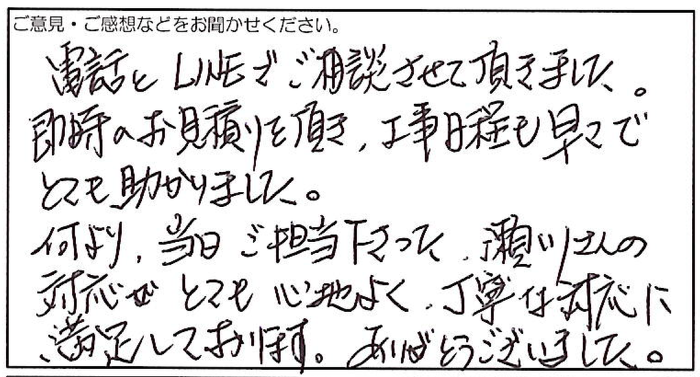 ご意見・ご感想などをお聞かせください。
電話とLINEでご相談させて頂きました。
即時のお見積りを頂き、工事日程も早々で
とても助かりました。
何より、当日ご担当下さった、瀬川さんの
対応がとても心地よく、丁寧な対応に
満足しております。ありがとうございました。